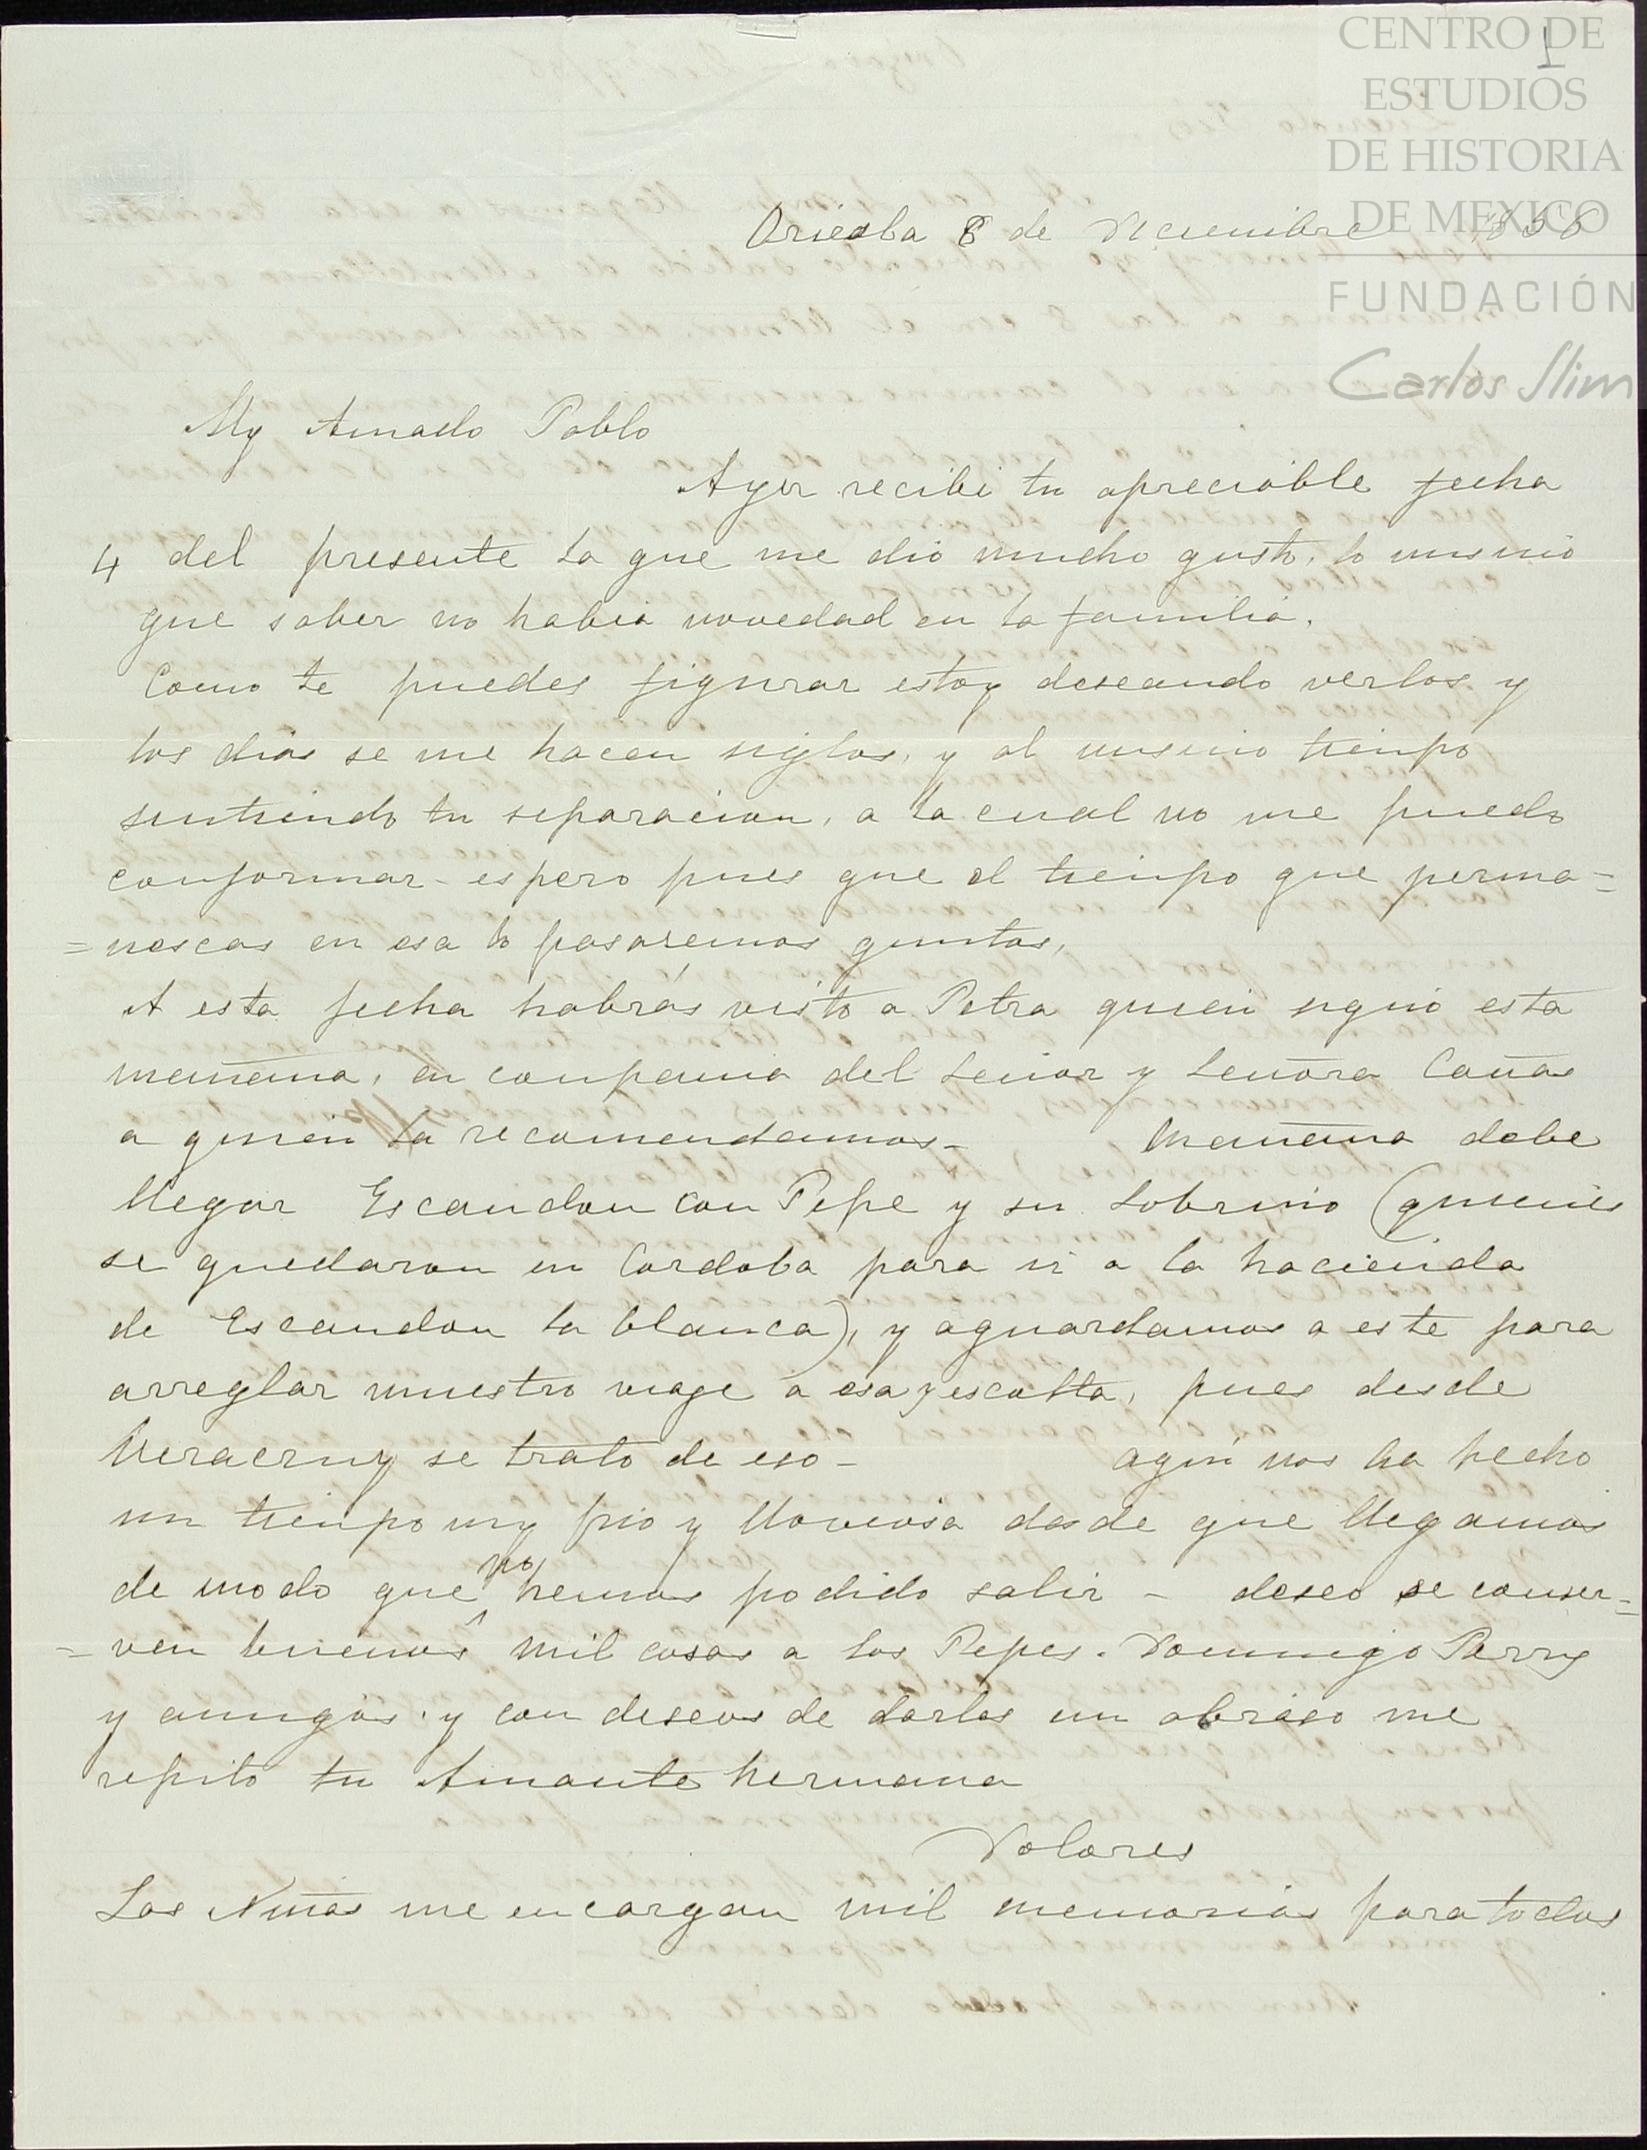 CENTRO DE
ESTUDIOS
DE HISTORIA
DE MEXICO
FUNDACIÓN
Carlos Slim
1
Orizaba 8 de Diciembre
My Amado Pablo
Ayer recibi tu apreciable fecha
4 del presente la que me dio mucho gusto, lo mismo
que saber no habia novedad en la familia.
Como te puedes figurar estoy deseando verlos y
los dias se me hacen siglos, y al mismo tiempo
sintiendo tu separacion, a la cual no me puedo
conformar - espero pues que el tiempo que perma=
=nescas en esa lo pasaremos guntos,
A esta fecha habrás visto a Petra quien siguio esta
mañana, en compania del Señor y Señora Cañas
a quien la recomendamos - Mañana debe
llegar Escandon con Pepe y su sobrino (quienes
se quedaron en Cordoba para ir a la hacienda
de Escandon la blanca), y aguardamos a este para
arreglar nuestro viage a esa y escolta, pues desde
Veracruz se trato de eso - aqui nos ha hecho
un tiempo muy frio y lloviosa desde que llegamos
de modo que no hemos podido salir - deseo se conser=
=ven buenos mil cosas a los Pepes. Domingo Parry
y amigos. y con deseos de darles un abraso me
repito tu Amante hermana
Dolores
Las Niñas me encargan mil memorias para todos